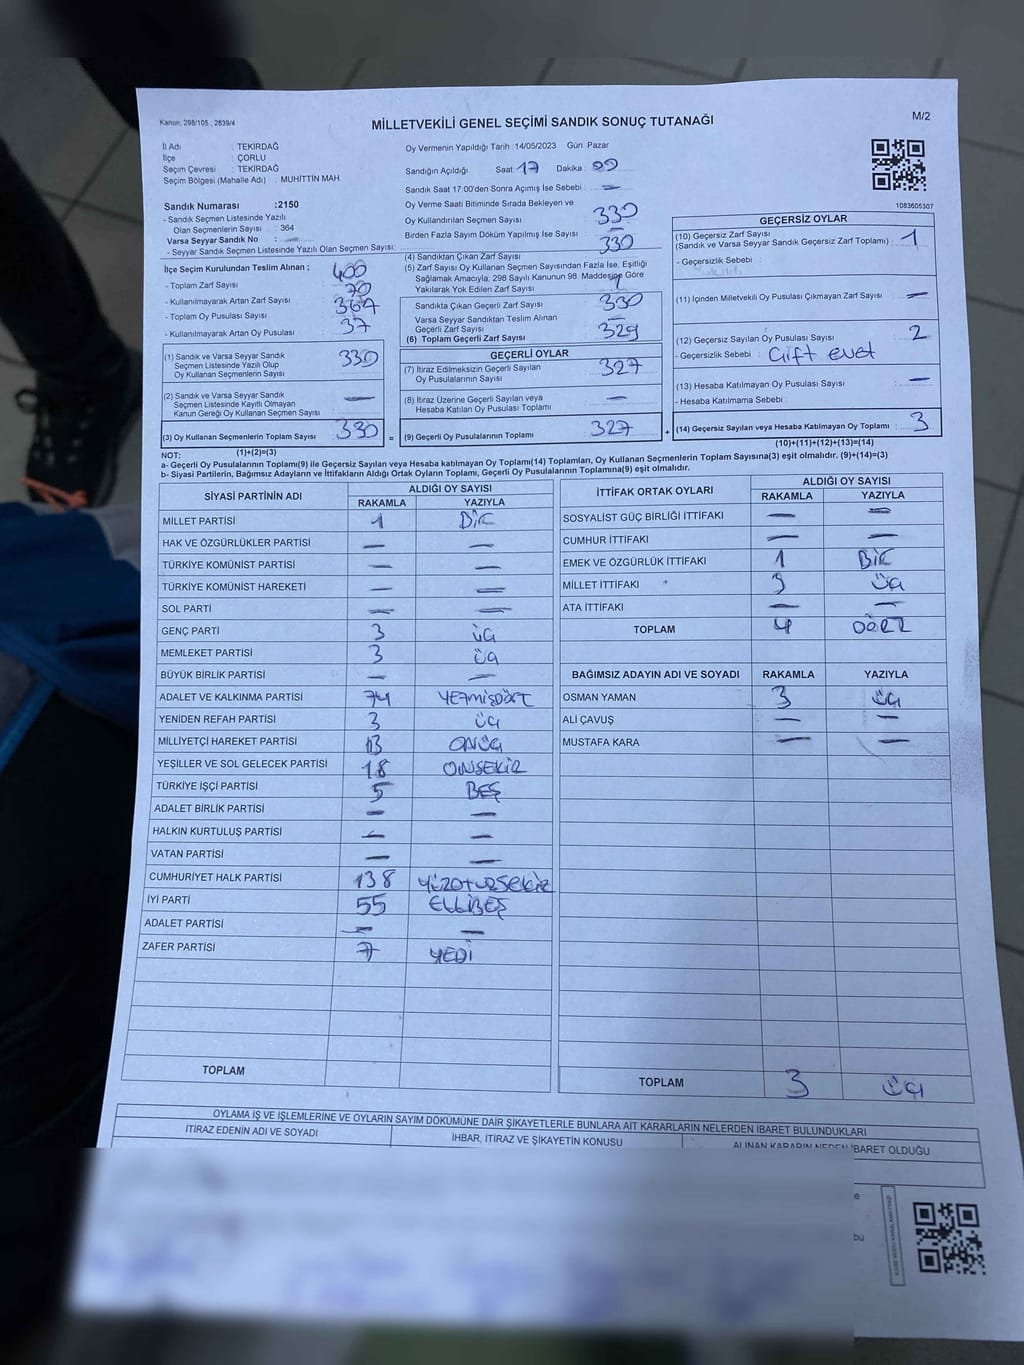 Kanun; 298/105 , 2839/4
MİLLETVEKİLİ GENEL SEÇİMİ SANDIK SONUÇ TUTANAĞI
M/2
İl Adı : TEKİRDAĞ
İlçe : ÇORLU
Seçim Çevresi : TEKİRDAĞ
Seçim Bölgesi (Mahalle Adı) : MUHİTTİN MAH.
Sandık Numarası :2150
- Sandık Seçmen Listesinde Yazılı
Olan Seçmenlerin Sayısı : 364
Varsa Seyyar Sandık No :
- Seyyar Sandık Seçmen Listesinde Yazılı Olan Seçmen Sayısı:
Oy Vermenin Yapıldığı Tarih : 14/05/2023 Gün: Pazar
Sandığın Açıldığı Saat: 17 Dakika :
Sandık Saat 17:00'den Sonra Açımış İse Sebebi : —
Oy Verme Saati Bitiminde Sırada Bekleyen ve
Oy Kullandırılan Seçmen Sayısı : 330
Birden Fazla Sayım Döküm Yapılmış İse Sayısı : —
1083605307
İlçe Seçim Kurulundan Teslim Alınan ;
- Toplam Zarf Sayısı : 400
- Kullanılmayarak Artan Zarf Sayısı : 70
- Toplam Oy Pusulası Sayısı : 367
- Kullanılmayarak Artan Oy Pusulası : 37
(1) Sandık ve Varsa Seyyar Sandık
Seçmen Listesinde Yazılı Olup
Oy Kullanan Seçmenlerin Sayısı : 330
(2) Sandık ve Varsa Seyyar Sandık
Seçmen Listesinde Kayıtlı Olmayan
Kanun Gereği Oy Kullanan Seçmen Sayısı : —
(3) Oy Kullanan Seçmenlerin Toplam Sayısı : 330
(1)+(2)=(3)
(4) Sandıktan Çıkan Zarf Sayısı : 330
(5) Zarf Sayısı Oy Kullanan Seçmen Sayısından Fazla İse, Eşitliği
Sağlamak Amacıyla, 298 Sayılı Kanunun 98. Maddesine Göre
Yakılarak Yok Edilen Zarf Sayısı :
Sandıkta Çıkan Geçerli Zarf Sayısı : 330
Varsa Seyyar Sandıktan Teslim Alınan
Geçerli Zarf Sayısı : —
(6) Toplam Geçerli Zarf Sayısı : 329
GEÇERLİ OYLAR
(7) İtiraz Edilmeksizin Geçerli Sayılan
Oy Pusulalarının Sayısı : 327
(8) İtiraz Üzerine Geçerli Sayılan veya
Hesaba Katılan Oy Pusulası Toplamı : —
= (9) Geçerli Oy Pusulalarının Toplamı : 327
GEÇERSİZ OYLAR
(10) Geçersiz Zarf Sayısı
(Sandık ve Varsa Seyyar Sandık Geçersiz Zarf Toplamı) : 1
- Geçersizlik Sebebi :
(11) İçinden Milletvekili Oy Pusulası Çıkmayan Zarf Sayısı : —
(12) Geçersiz Sayılan Oy Pusulası Sayısı : 2
- Geçersizlik Sebebi : Çift evet
(13) Hesaba Katılmayan Oy Pusulası Sayısı : —
- Hesaba Katılmama Sebebi :
+ (14) Geçersiz Sayılan veya Hesaba Katılmayan Oy Toplamı : 3
(10)+(11)+(12)+(13)=(14)
NOT:
a- Geçerli Oy Pusulalarının Toplamı(9) ile Geçersiz Sayılan veya Hesaba katılmayan Oy Toplamı(14) Toplamları, Oy Kullanan Seçmenlerin Toplam Sayısına(3) eşit olmalıdır. (9)+(14)=(3)
b- Siyasi Partilerin, Bağımsız Adayların ve İttifakların Aldığı Ortak Oyların Toplamı, Geçerli Oy Pusulalarının Toplamına(9) eşit olmalıdır.
SİYASİ PARTİNİN ADI ALDIĞI OY SAYISI
RAKAMLA YAZIYLA
MİLLET PARTİSİ 1 BİR
HAK VE ÖZGÜRLÜKLER PARTİSİ — —
TÜRKİYE KOMÜNİST PARTİSİ — —
TÜRKİYE KOMÜNİST HAREKETİ — —
SOL PARTİ — —
GENÇ PARTİ 3 üç
MEMLEKET PARTİSİ 3 üç
BÜYÜK BİRLİK PARTİSİ — —
ADALET VE KALKINMA PARTİSİ 74 YETMİŞDÖRT
YENİDEN REFAH PARTİSİ 3 üç
MİLLİYETÇİ HAREKET PARTİSİ 13 ONÜÇ
YEŞİLLER VE SOL GELECEK PARTİSİ 18 ONSEKİZ
TÜRKİYE İŞÇİ PARTİSİ 5 BEŞ
ADALET BİRLİK PARTİSİ — —
HALKIN KURTULUŞ PARTİSİ — —
VATAN PARTİSİ — —
CUMHURİYET HALK PARTİSİ 138 YÜZOTUZSEKİZ
İYİ PARTİ 55 ELLİBEŞ
ADALET PARTİSİ — —
ZAFER PARTİSİ 7 YEDİ
TOPLAM
İTTİFAK ORTAK OYLARI ALDIĞI OY SAYISI
RAKAMLA YAZIYLA
SOSYALİST GÜÇ BİRLİĞİ İTTİFAKI — —
CUMHUR İTTİFAKI — —
EMEK VE ÖZGÜRLÜK İTTİFAKI 1 BİR
MİLLET İTTİFAKI 3 üç
ATA İTTİFAKI — —
TOPLAM 4 DÖRT
BAĞIMSIZ ADAYIN ADI VE SOYADI RAKAMLA YAZIYLA
OSMAN YAMAN 3 üç
ALİ ÇAVUŞ — —
MUSTAFA KARA — —
TOPLAM 3 üç
OYLAMA İŞ VE İŞLEMLERİNE VE OYLARIN SAYIM DÖKÜMÜNE DAİR ŞİKAYETLERLE BUNLARA AİT KARARLARIN NELERDEN İBARET BULUNDUKLARI
İTİRAZ EDENİN ADI VE SOYADI İHBAR, İTİRAZ VE ŞİKAYETİN KONUSU ALINAN KARARIN NEDEN İBARET OLDUĞU